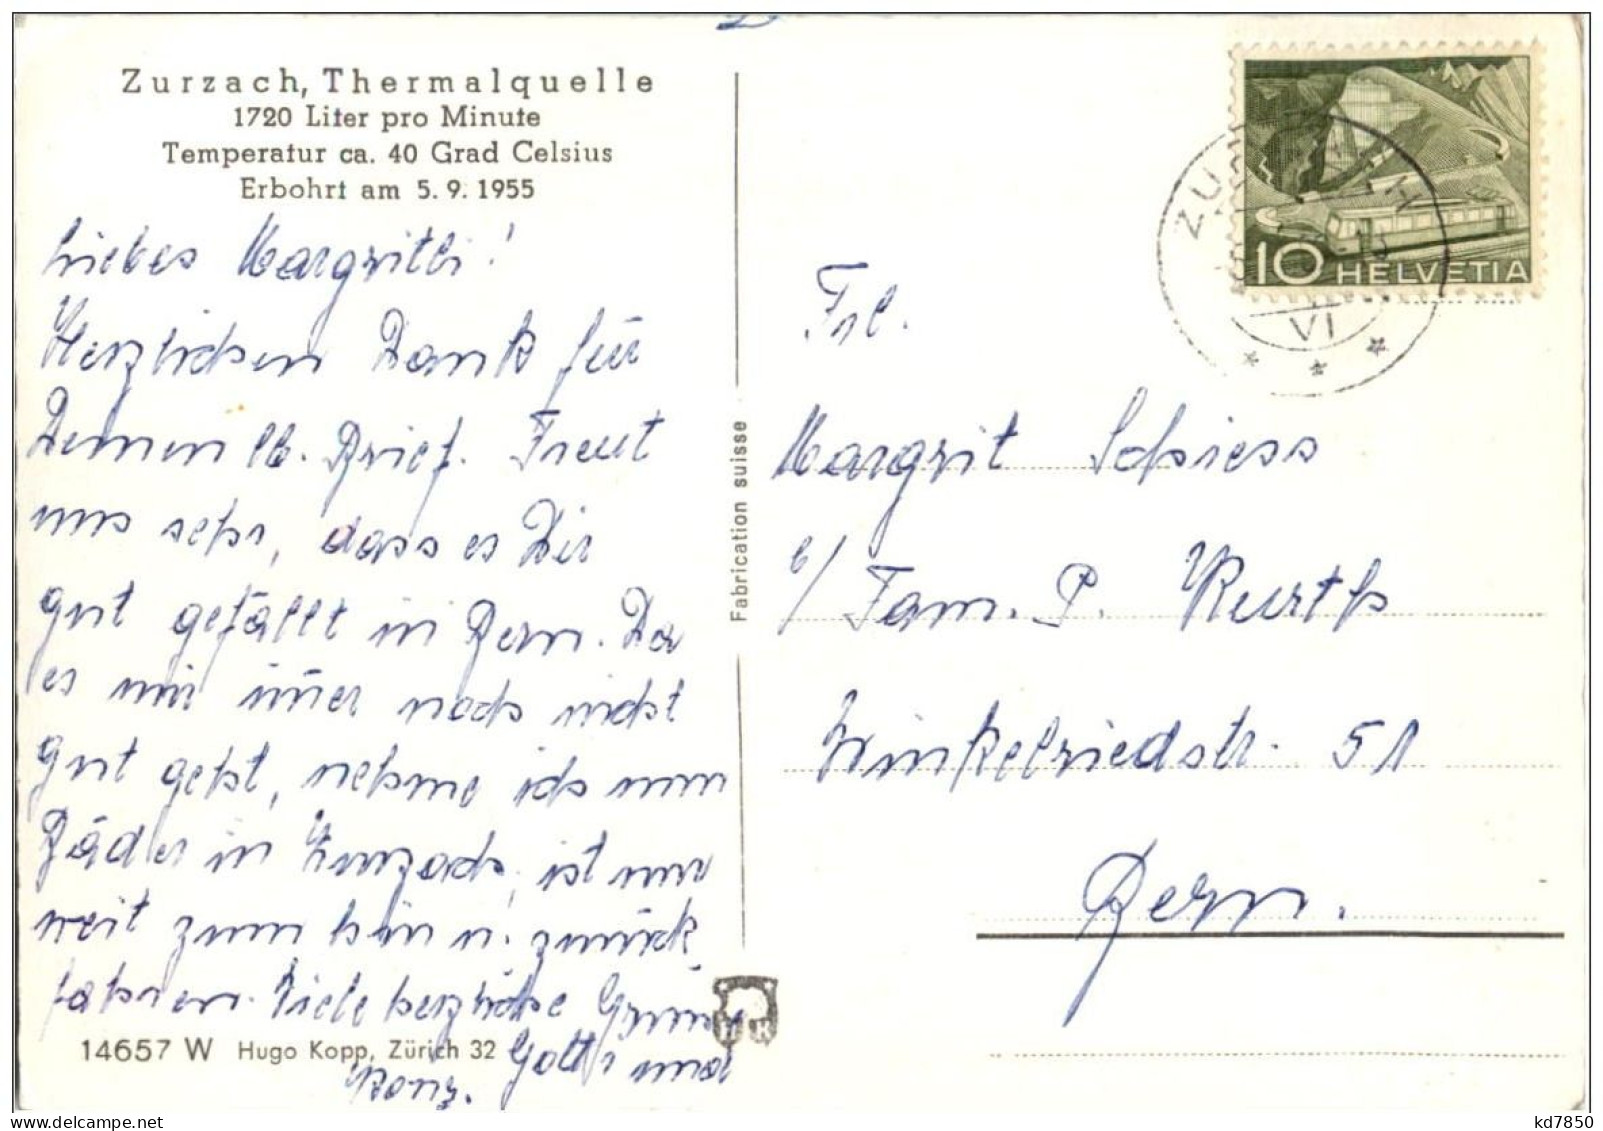 Zurzach, Thermalquelle
1720 Liter pro Minute
Temperatur ca. 40 Grad Celsius
Erbohrt am 5. 9. 1955
Liebes Margritli!
Herzlichen Dank für
Deinen lb. Brief. Freut
uns sehr, dass es Dir
gut gefällt in Bern. Da
es mir imer noch nicht
gut geht, nehme ich nun
Bäder in Zurzach, ist nur
weit zum hin u. zurück
fahren. Viele herzliche Grüsse
Gotti und
14657 W Hugo Kopp, Zürich 32
Fabrication suisse
HK
10 HELVETIA
ZURZACH
VI
Frl.
Margrit Schiess
b/ Fam. P. Kurth
Winkelriedstr. 51
Bern.
delcampe.net
kd7850